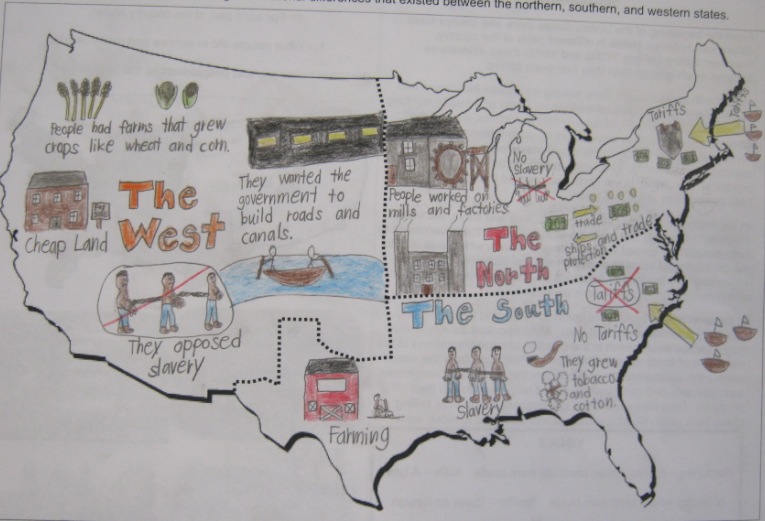 differences that existed between the northern, southern, and western states.
People had farms that grew
crops like wheat and corn.
The
West
Cheap Land
They wanted the
government to
build roads and
canals.
They opposed
slavery
People worked on
mills and factories
No
Slavery
The
North
Tariffs
Tariffs
trade
ships and trade
protection
The South
Tariffs
No Tariffs
Slavery
They grew
tobacco
and
cotton.
Farming